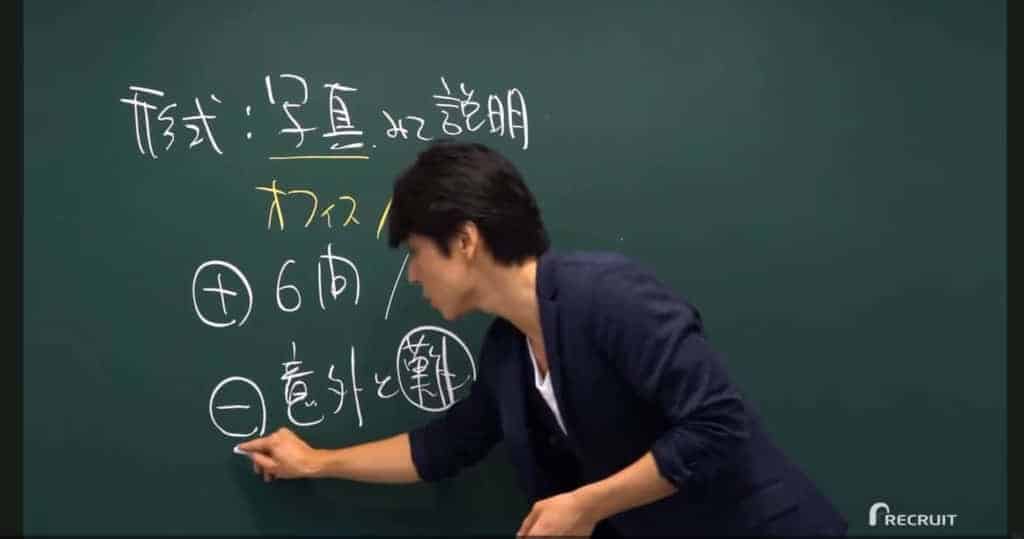 形式：写真みて説明
オフィス/
⊕ 6問 /
⊖ 意外と難
RECRUIT